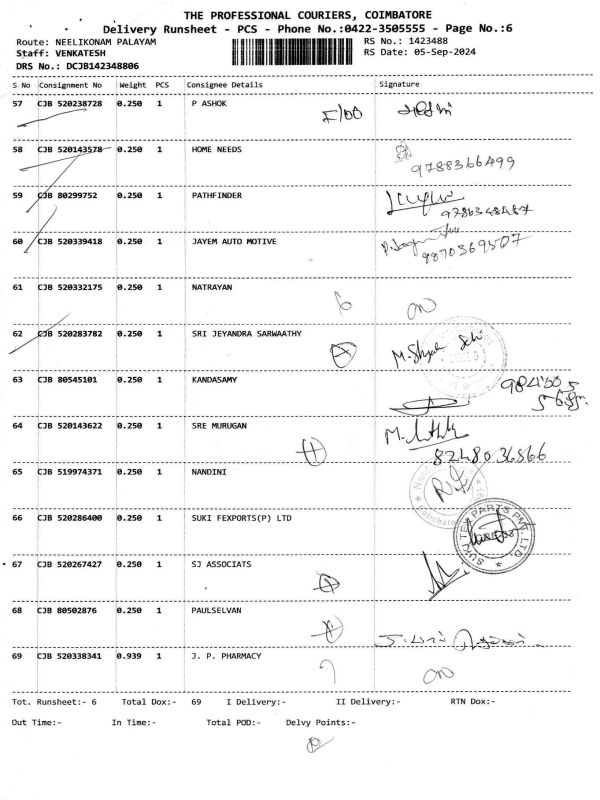 THE PROFESSIONAL COURIERS, COIMBATORE
Delivery Runsheet - PCS - Phone No.:0422-3505555 - Page No.:6
Route: NEELIKONAM PALAYAM RS No.: 1423488
Staff: VENKATESH RS Date: 05-Sep-2024
DRS No.: DCJB142348806
S No Consignment No Weight PCS Consignee Details Signature
57 CJB 520238728 0.250 1 P ASHOK
58 CJB 520143578 0.250 1 HOME NEEDS
9788366499
59 CJB 80299752 0.250 1 PATHFINDER
60 CJB 520339418 0.250 1 JAYEM AUTO MOTIVE
8870369507
61 CJB 520332175 0.250 1 NATRAYAN
62 CJB 520283782 0.250 1 SRI JEYANDRA SARWAATHY
63 CJB 80545101 0.250 1 KANDASAMY
64 CJB 520143622 0.250 1 SRE MURUGAN
65 CJB 519974371 0.250 1 NANDINI
66 CJB 520286400 0.250 1 SUKI FEXPORTS(P) LTD
67 CJB 520267427 0.250 1 SJ ASSOCIATS
68 CJB 80502876 0.250 1 PAULSELVAN
69 CJB 520338341 0.939 1 J. P. PHARMACY
Tot. Runsheet:- 6 Total Dox:- 69 I Delivery:- II Delivery:- RTN Dox:-
Out Time:- In Time:- Total POD:- Delvy Points:-